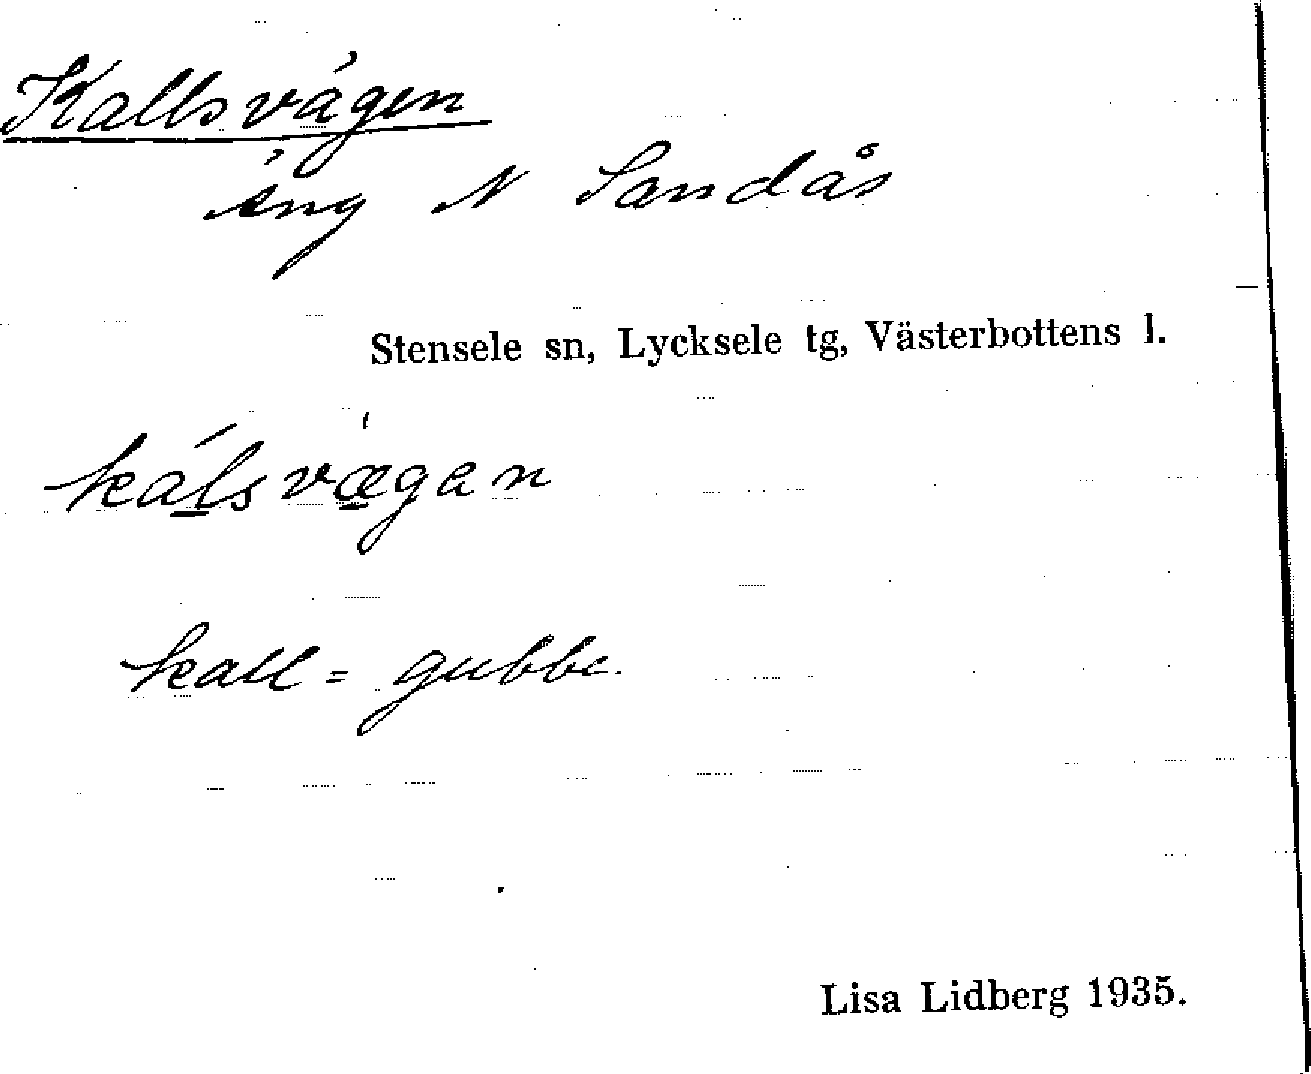 Kallsvägen
Äng N Sandås
Stensele sn, Lycksele tg, Västerbottens l.
kálsvæ̀gan
kall = gubbe.
Lisa Lidberg 1935.